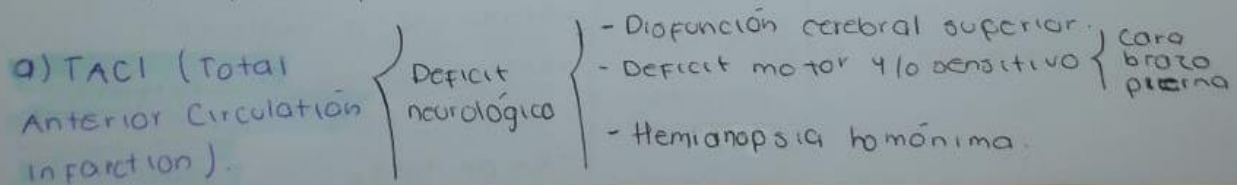 a) TACI (Total
Anterior Circulation
Infarction).
Deficit
neurológico
- Disfunción cerebral superior.
- Deficit motor y/o sensitivo
cara
brazo
pierna
- Hemianopsia homónima.